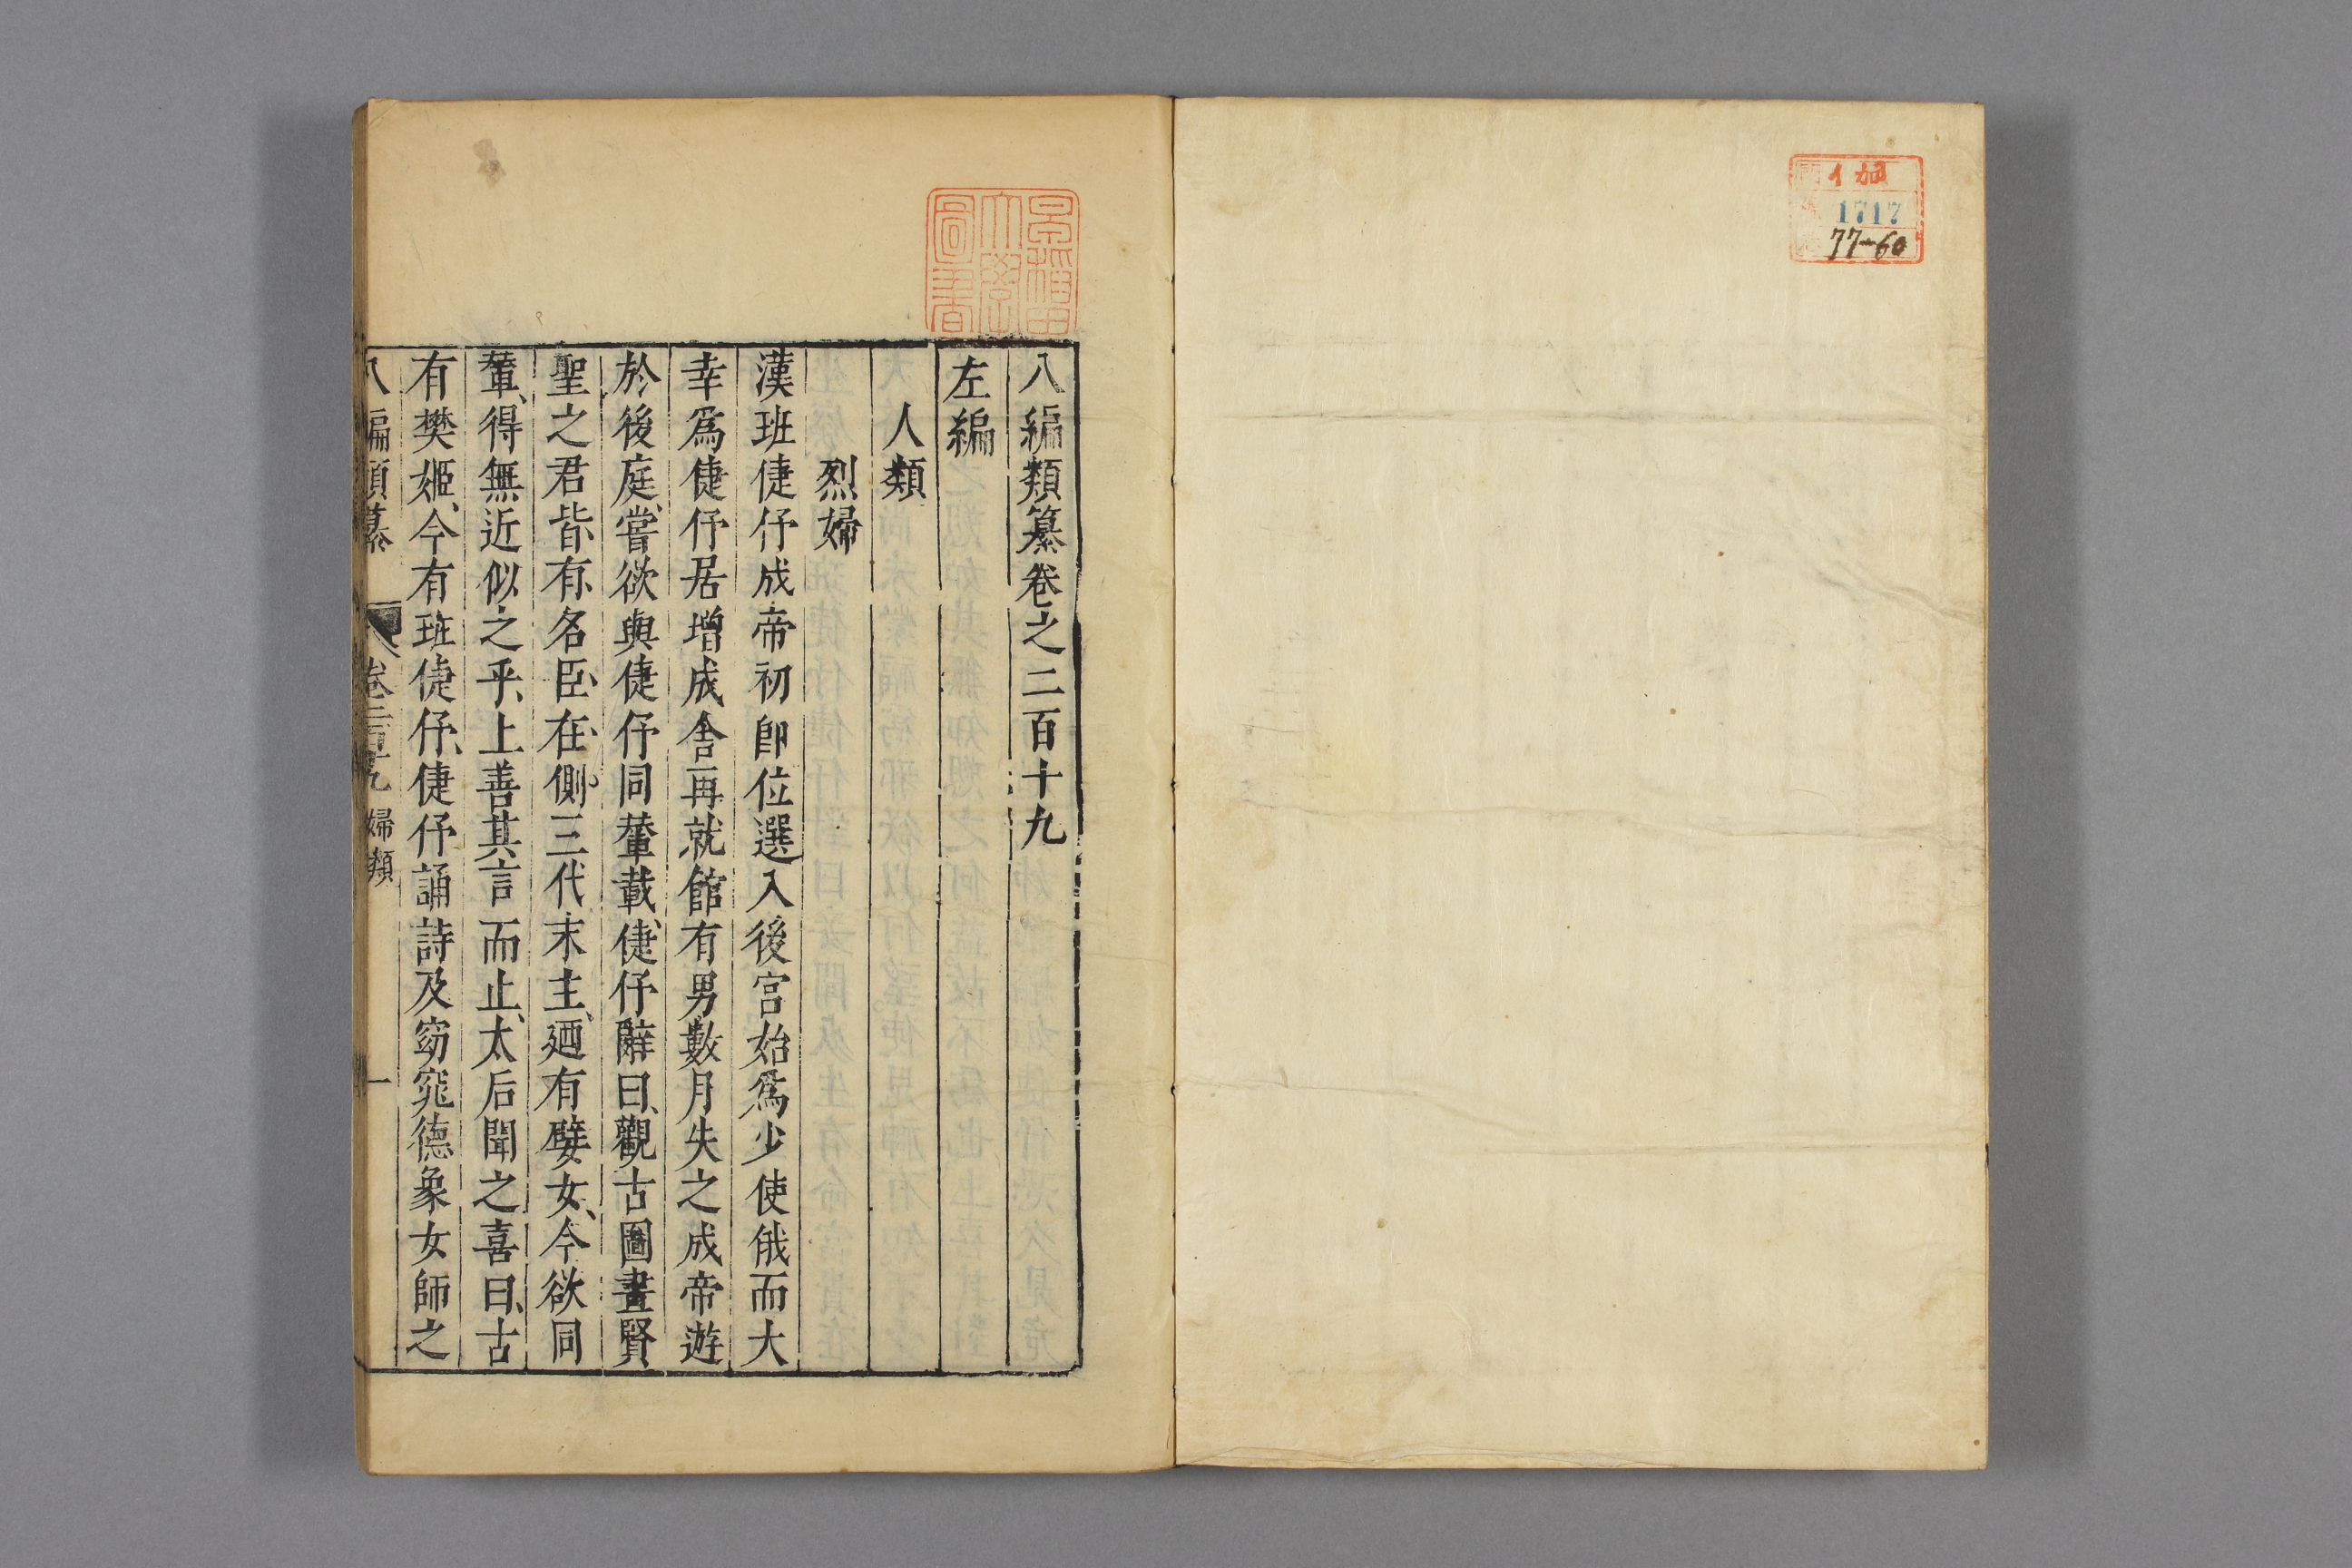 イ加
1717
77-60
早稲田
大學
圖書
八編類纂卷之二百十九
左編
人類
烈婦
漢班倢伃成帝初卽位選入後宮始爲少使俄而大
幸爲倢伃居增成舍再就館有男數月失之成帝遊
於後庭、嘗欲與倢伃同輦載、倢伃辭曰、觀古圖畫賢
聖之君皆有名臣在側、三代末主、廼有嬖女、今欲同
輦、得無近似之乎、上善其言而止、太后聞之喜曰、古
有樊姬、今有班倢伃、倢伃誦詩及窈窕德象女師之
八編類纂 卷二百十九 婦類 一